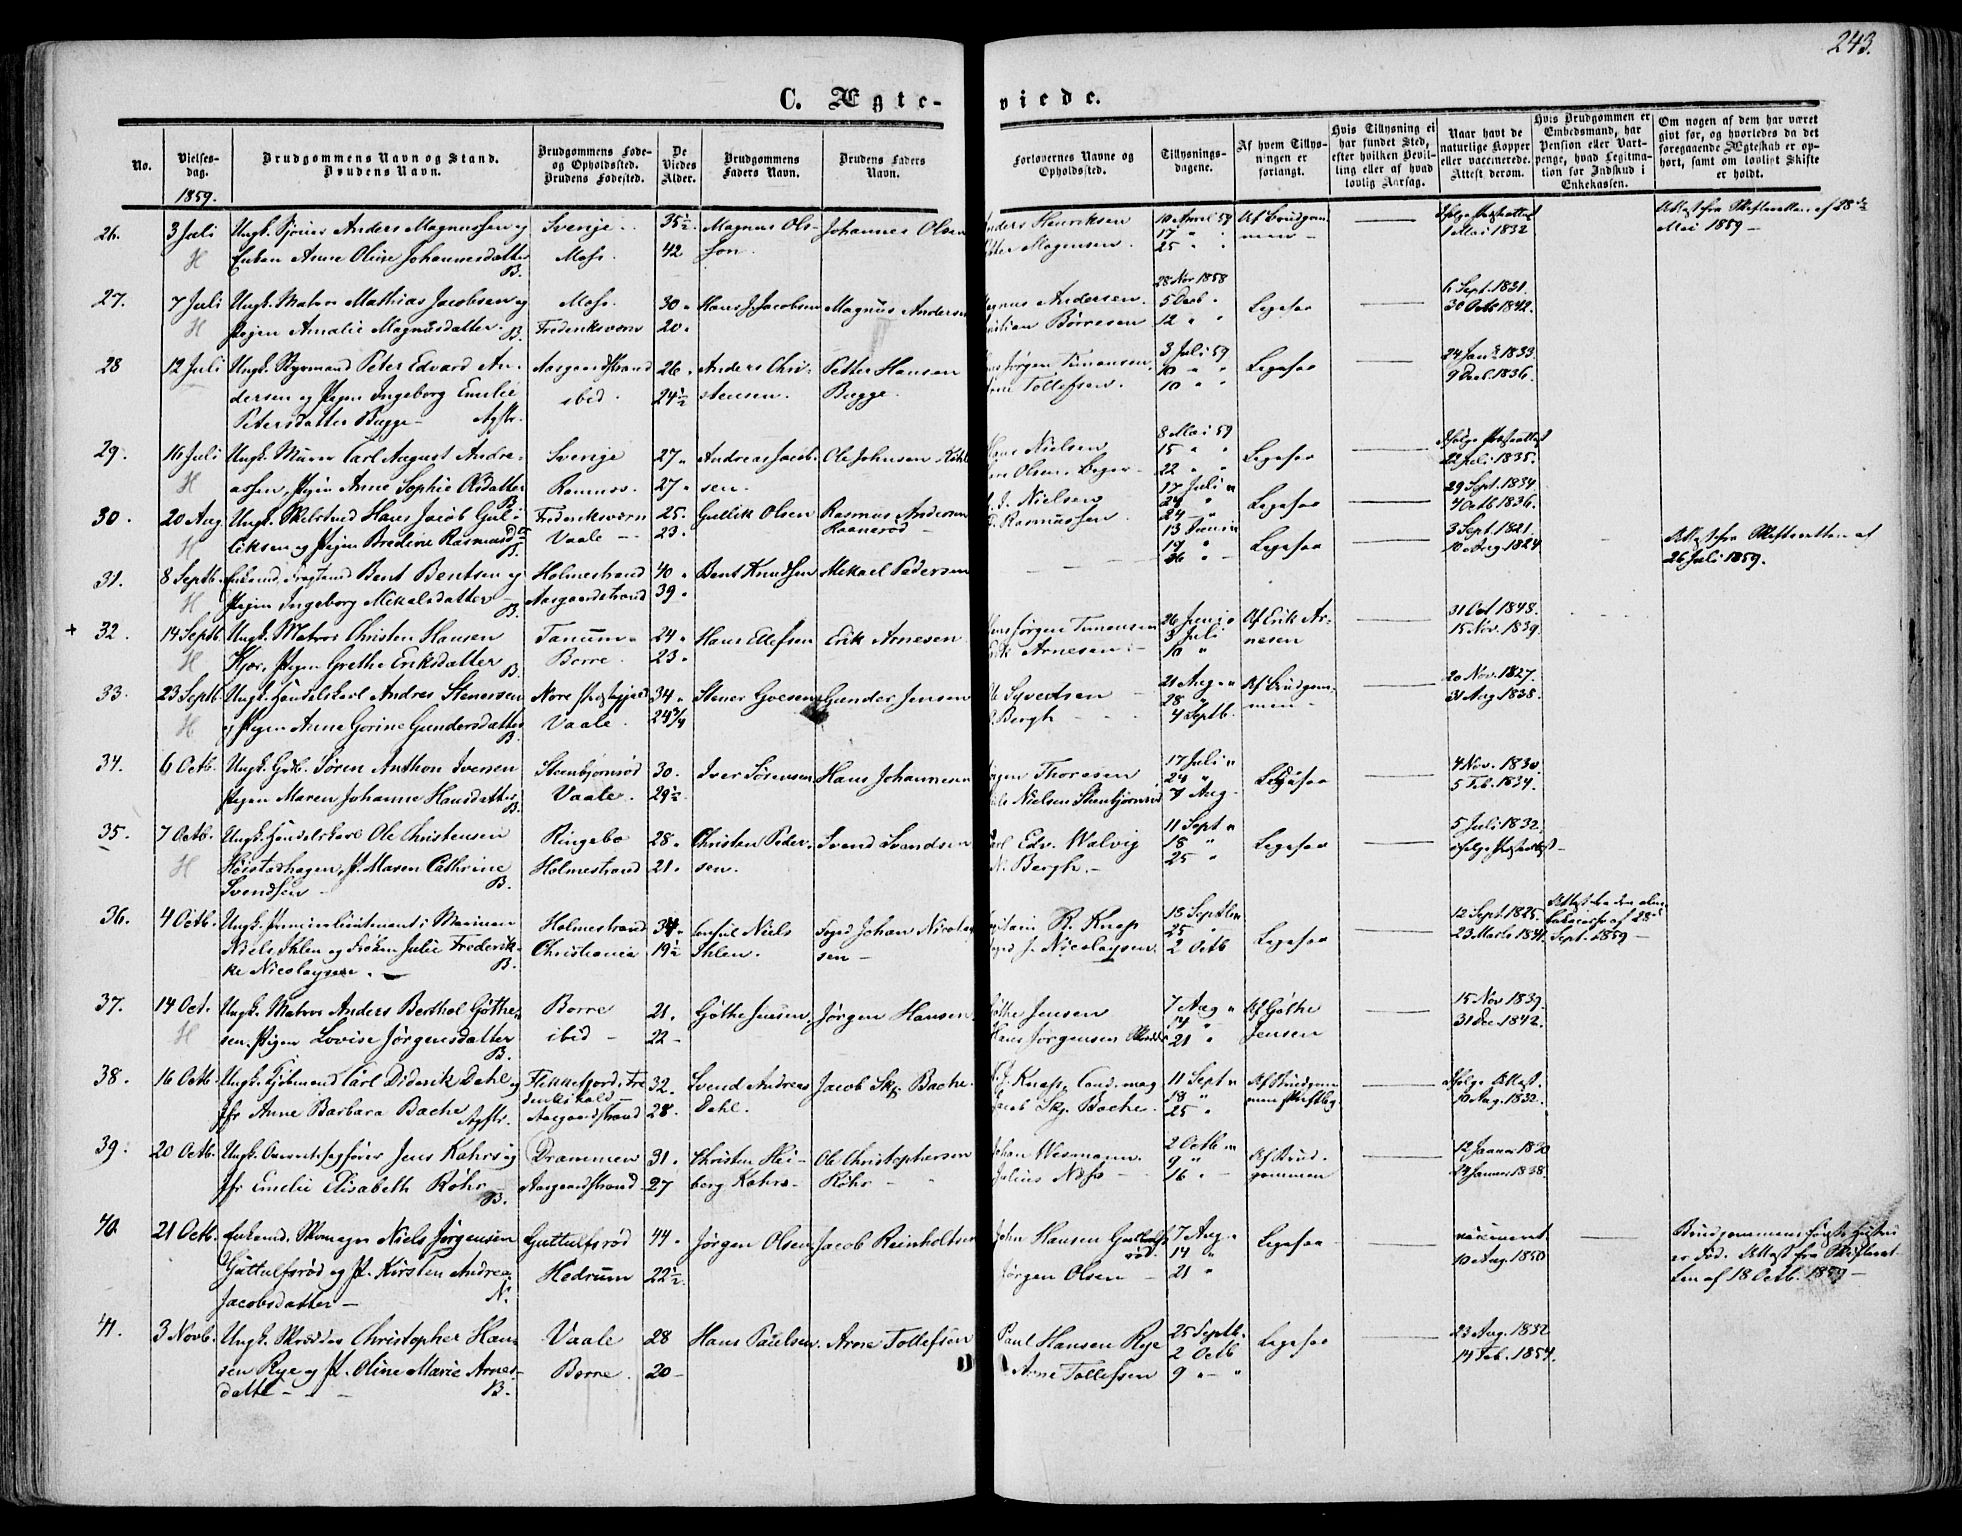 243.
C. Ægte- viede.
No.
Vielses-
dag.
Brudgommens Navn og Stand.
Brudens Navn.
Brudgommens Føde-
og Opholdssted.
Brudens Fødested.
De
Viedes
Alder.
Brudgommens
Faders Navn.
Brudens Faders
Navn.
Forlovernes Navne og
Opholdssted.
Tillysnings-
dagene.
Af hvem Tillys-
ningen er
forlangt.
Hvis Tillysning ei
har fundet Sted,
efter hvilken Bevil-
ling eller af hvad
lovlig Aarsag.
Naar havt de
naturlige Kopper
eller vaccinerede.
Attest derom.
Hvis Brudgommen er
Embedsmand, har
Pension eller Vart-
penge, hvad Legitima-
tion for Indskud i
Enkekassen.
Om nogen af dem har været
givt før, og hvorledes da det
foregaaende Ægteskab er op-
hørt, samt om lovligt Skifte
er holdt.
1859.
26. 3 Juli Ungk. Anders Magnussen og Sverige 35½ Magnus Ols- Johannes Olsen Anders Henriksen 10 April 59 Af Brudgom- 1 Mai 1832 Attest fra Skifteretten af 28de
H Enken Anne Oline Johannesdatter Moss 42 son. Magnusen 17 " " men Mai 1859
B. 25 " "
28 Nov 1858
27. 7 Juli Ungk. Matros Mathias Jacobsen og Moss. 30 Hans J. Jacobsen Magnus Andersen Magnus Andersen 5 Decb " Ligesaa 6 Sept. 1831.
H Pigen Amalie Magnusdatter B. Frederiksværn 20 Christian Børresen 12 " " 30 Octb 1842.
28 12 Juli Ungk. Styrmand Peter Edvard An- Aasgaardstrand 26 Anders Chri- Petter Hansen Jørgen Timansen 3 Juli 59 Ligesaa 24 Jan. 1833
dersen og Pigen Ingeborg Emilie ibid. 24½ stensen. Bugge. Tollefsen. 10 " " 9 Decb. 1836.
Petersdatter Bugge Agstr. 10 " "
8 Mai 59
29. 16 Juli Ungk. Murer Carl August Andre- Sverige 27 Andreas Jacob- Ole Johnsen Hans Nielsen 15 " " Ligesaa
H assen, Pigen Anne Sophie Olsdatter Ramnes. 27 sen. Olsen 22 " " 22 Juli 1835.
B.
30. 20 Aug Ungk. Hans Jacob Gul- Frederiksværn 25. Gullik Olsen Rasmus Andersen Nielsen 17 Juli " Ligesaa 29 Sept. 1834
H liksen og Pigen Bredine Rasmusd. Vaale 23. Raanerød Rasmussen 24 " 4 Octb 1836.
24
31. 8 Septb. Enkemd. Bent Bentsen og Holmestrand 40 Bent Knudsen Mekael Pedersen 13 Juni " Ligesaa 3 Sept. 1821. Attest fra Skifteretten af
H Pigen Ingeborg Mekalsdatter B. Aasgaardstrand 39 19 " 10 Aug. 1824 26 Juli 1859.
26 "
+ 32 14 Septb. Ungk. Matros Christen Hansen Tanum 24 Hans Ellefsen Erik Arnesen Jørgen Timansen 26 Juni " Af Erik Ar- 31 Oct 1848.
H Kjær, Pigen Grethe Eriksdatter B. Borre. 23 Erik Arnesen 3 Juli nesen 15 Nov. 1839.
10 "
33. 23 Septb. Ungk. Handelskarl Andres Stenersen Nore 34 Stener Gunder Jensen Syvertsen 21 Aug " Af Brudgom- 20 Nov. 1827.
H og Pigen Anne Gorine Gundersdatter Vaale. 24¾ Bergh 28 " men 31 Aug 1838.
B. 4 Septb.
34. 6 Octb. Ungk. Grdb. Søren Anthon Iversen Steenbjørnsrød 30. Iver Sørensen Hans Johannesen Jørgen Thoresen 17 Juli " Ligesaa 4 Nov. 1830
Pigen Maren Johanne Hansdatter B. Vaale. 29½ Nielsen Stenbjørnsrød 24 " 5 Feb. 1834.
7 Aug
35. 7 Octb. Ungk. Handelskarl Ole Christensen Ringebo 28 Christen Peder- Svend Svendsen Carl Edv. Walvig 11 Sept " Ligesaa 5 Juli 1832.
H Høistadhagen, P. Maren Cathrine Holmestrand 21 sen. N. Bergh. 18 "
Svendsen B. 25 "
36. 4 Octb. Ungk. Premierlieutenant i Marinen Holmestrand 34 Consul Niels Sogpr Johan Nicolay- Capitain R. Knap 18 Septb " Ligesaa 12 Sept. 1825. Attest fra den alm.
Niels Ihlen og Frøken Julie Frederik- Christiania 19½ Ihlen. sen J. Nicolaysen. 25 " 23 Marts 1841. Enkecasse af 23de
ke Nicolaysen. B. 2 Octb Sept. 1859
37. 14 Oct. Ungk. Matros Anders Berthol Gøthe- Borre 21 Gøthe Jensen Jørgen Hansen Gøthe Jensen 7 Aug " Af Gøthe 15 Nov 1839.
H sen. Pigen Lovise Jørgensdatter ibid 22 Hans Jørgensen 14 " Jensen 31 Dec 1842.
B. 21 "
38. 16 Octb. Ungk. Kjøbmand Carl Diderik Dahl og Flekkefjord, Fre- 32. Svend Andreas Jacob Skj. Bache Knap, Cand. mag 11 Sept " Af Brudgom- Ifølge Attest.
Jfr Anne Barbara Bache Agstr. derikshald Aasgaardstrand 28. Dahl. Jacob Skj. Bache. 18 " men skriftlig. 10 Aug. 1832.
25 "
39. 20 Octb. Ungk. Overretssagfører Jens Kahrs og Drammen 31. Christen Hei- Ole Christophersen Johan Wesmann. 2 Octb " Af Brud- 12 Januar 1830
Jfr Emilie Elisabeth Røhr B. Aasgaardstrand 27 berg Kahrs Røhr Julius 9 " gommen 29 Januar 1838.
16 "
40 21 Octb. Enkemd. Skomager Niels Jørgensen Guttulfsrød 44 Jørgen Olsen Jacob Reinholtsen John Hansen Guttulfs- 7 Aug " Ligesaa vaccineret Brudgommens første Hustru
Guttulfsrød og P. Kirsten Andrea Hedrum 22½ rød. 14 " 10 Aug. 1850 er død. Attest fra Skifteret-
Jacobsdatter N. Jørgen Olsen 21 " ten af 18 Octb. 1859
41. 3 Novb. Ungk. Skrædder Christopher Han- Vaale 28 Hans Paulsen. Arne Tollefsen Paul Hansen Rye 25 Septb. Ligesaa 23 Aug. 1832
sen Rye og P. Oline Marie Arnes- Borre. 20 Arne Tollefsen 2 Octb 14 Feb. 1854.
datter B. 9 "